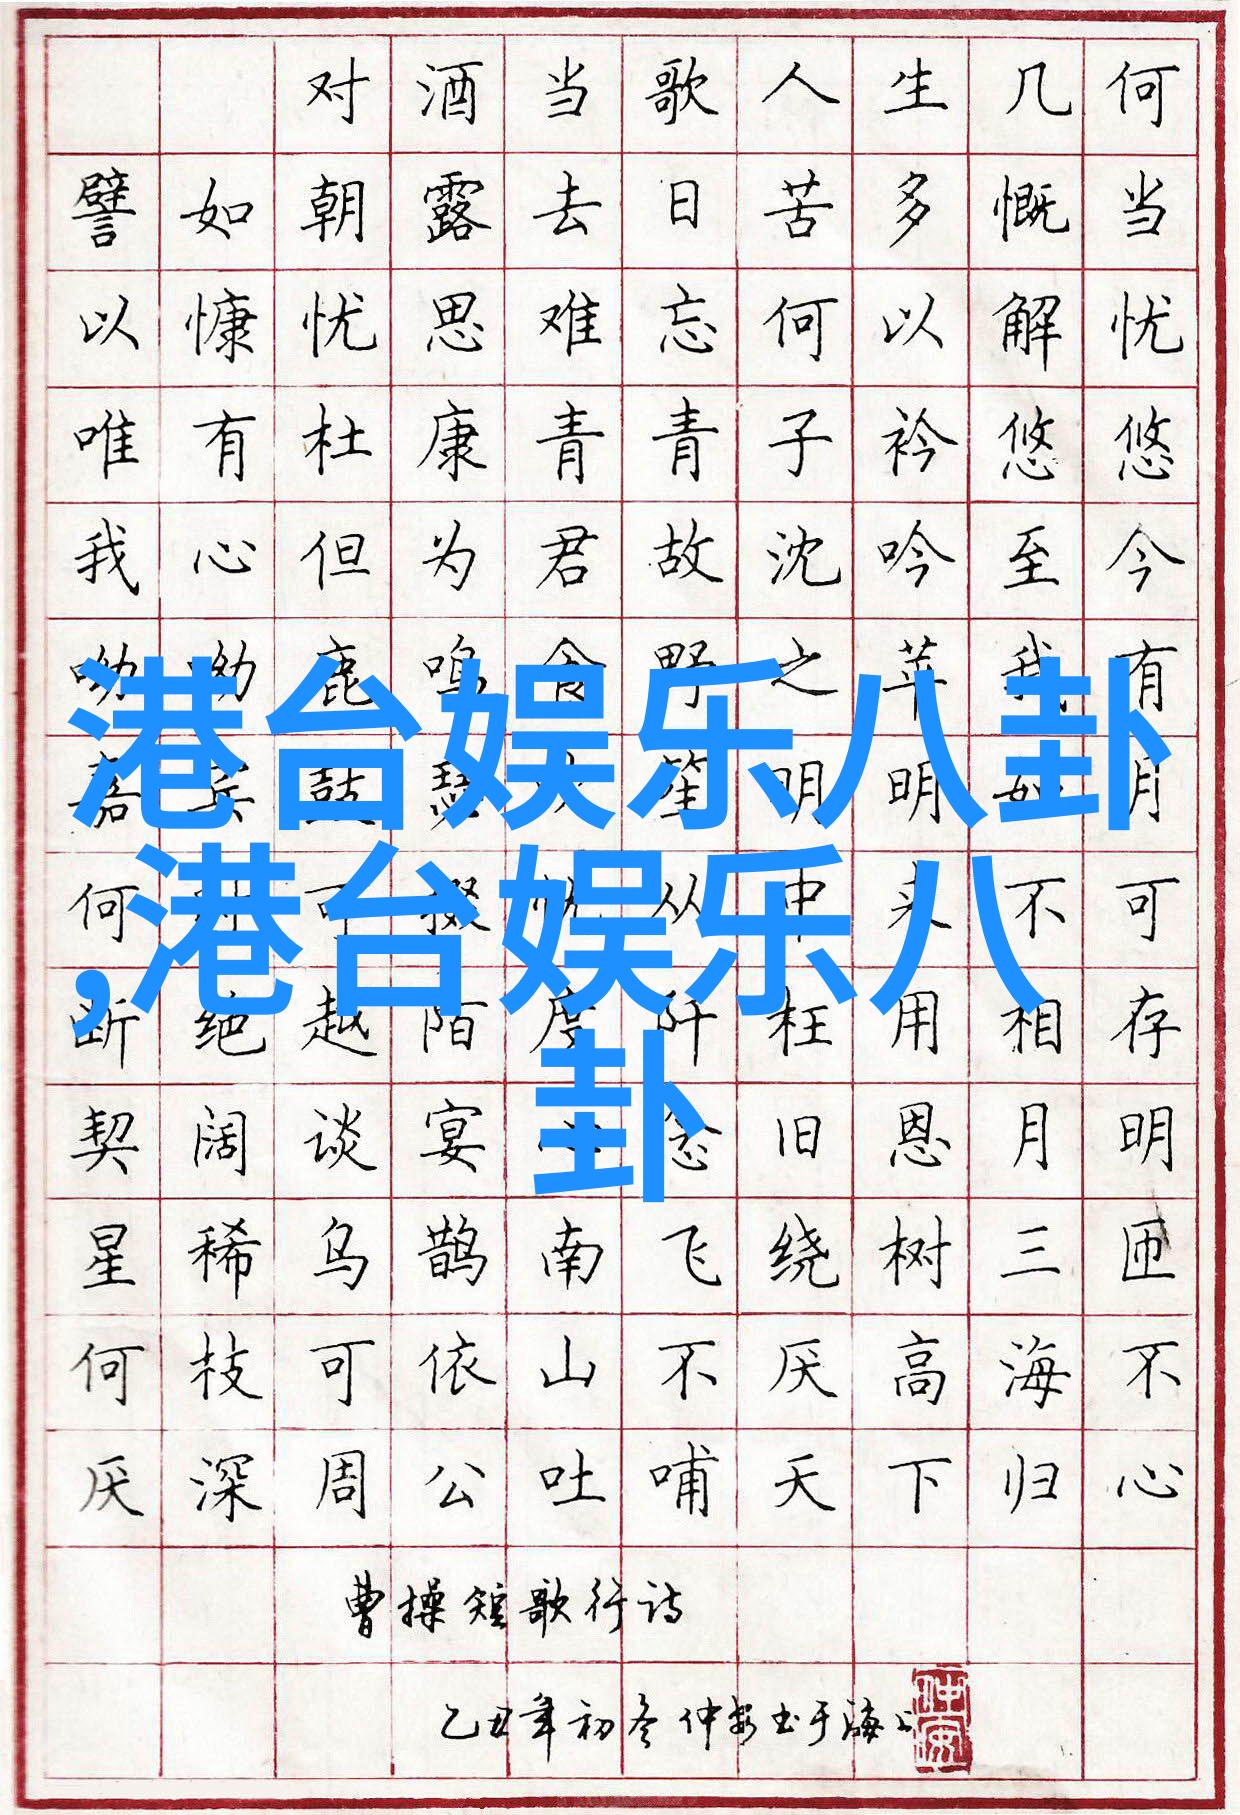 对酒当歌人生几何
譬如朝露去日苦多慨当
以慷忧思难忘何以解忧
唯有杜康青青子衿悠悠
我心但为君故沈吟至今
呦呦鹿鸣食野之苹我有
港台娱乐八卦
嘉鼓瑟笙明明如月
,港台娱乐八
何可掇忧从中来不可
断绝越陌度阡枉用相存
卦
契阔谈宴念旧恩月明
星稀乌鹊南飞绕树三匝
何枝可依山不厌高海不
厌深周公吐哺天下归心
曹操短歌行诗
乙丑年初冬仲安书于海上
仲安